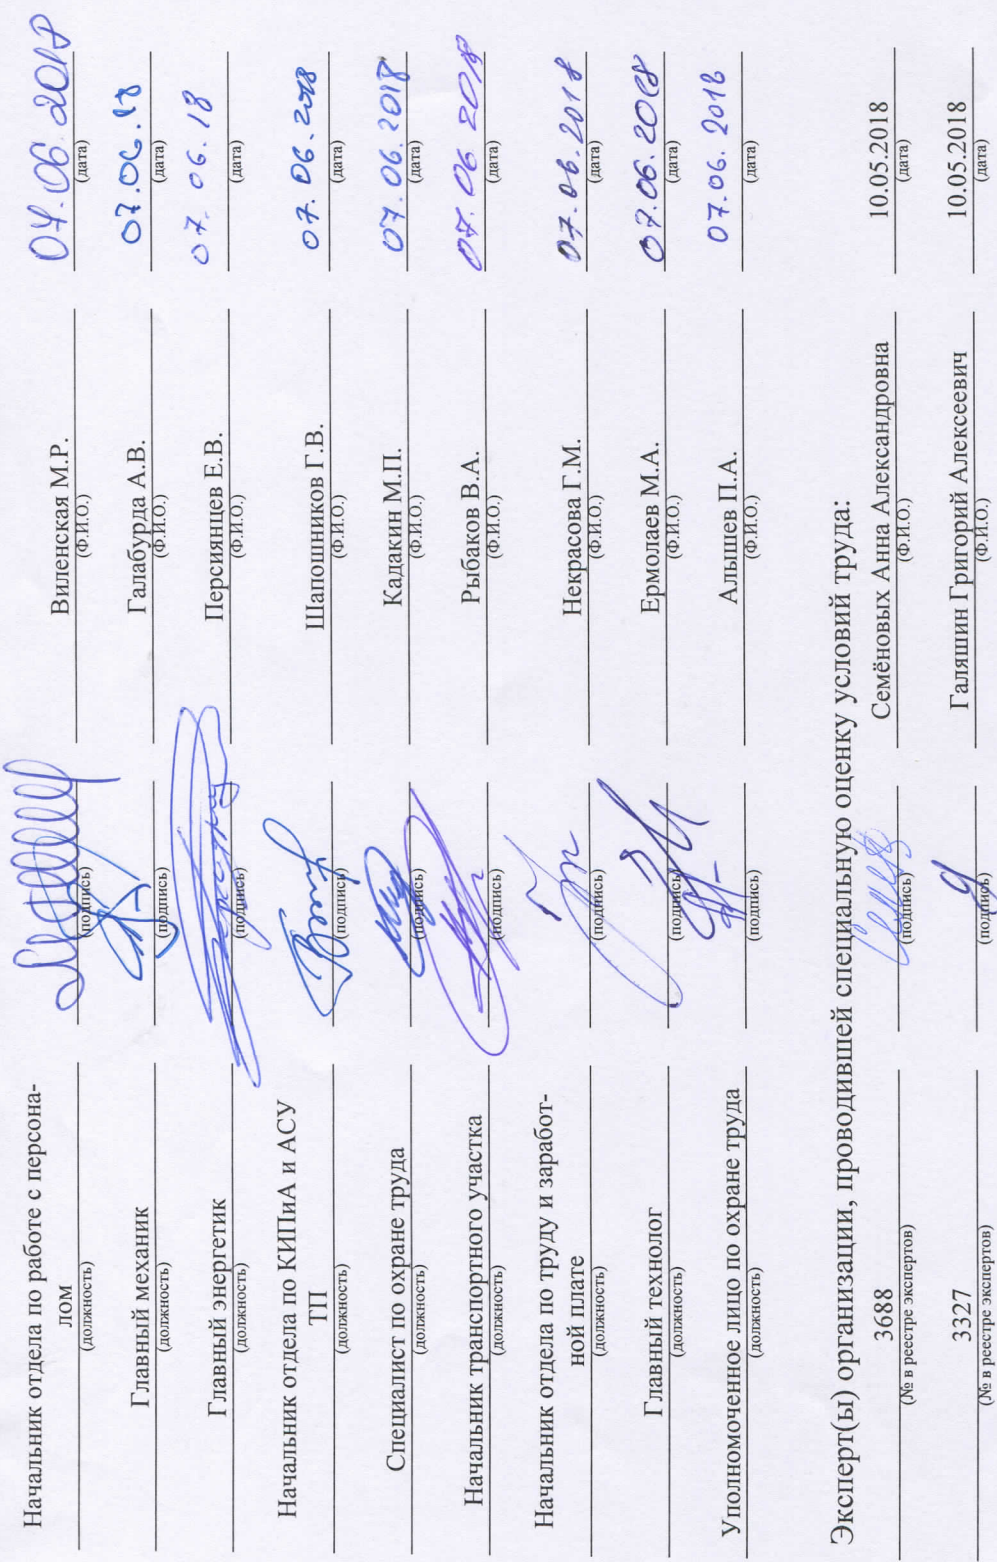 Начальник отдела по работе с персона-
лом Виленская М.Р. 07.06.2018
(должность) (подпись) (Ф.И.О.) (дата)
Главный механик Галабурда А.В. 07.06.18
(должность) (подпись) (Ф.И.О.) (дата)
Главный энергетик Персиянцев Е.В. 07.06.18
(должность) (подпись) (Ф.И.О.) (дата)
Начальник отдела по КИПиА и АСУ
ТП Шапошников Г.В. 07.06.2018
(должность) (подпись) (Ф.И.О.) (дата)
Специалист по охране труда Кадакин М.П. 07.06.2018
(должность) (подпись) (Ф.И.О.) (дата)
Начальник транспортного участка Рыбаков В.А. 07.06.2018
(должность) (подпись) (Ф.И.О.) (дата)
Начальник отдела по труду и заработ-
ной плате Некрасова Г.М. 07.06.2018
(должность) (подпись) (Ф.И.О.) (дата)
Главный технолог Ермолаев М.А. 07.06.2018
(должность) (подпись) (Ф.И.О.) (дата)
Уполномоченное лицо по охране труда Алышев П.А. 07.06.2018
(должность) (подпись) (Ф.И.О.) (дата)
Эксперт(ы) организации, проводившей специальную оценку условий труда:
3688 Семёновых Анна Александровна 10.05.2018
(№ в реестре экспертов) (подпись) (Ф.И.О.) (дата)
3327 Галяшин Григорий Алексеевич 10.05.2018
(№ в реестре экспертов) (подпись) (Ф.И.О.) (дата)